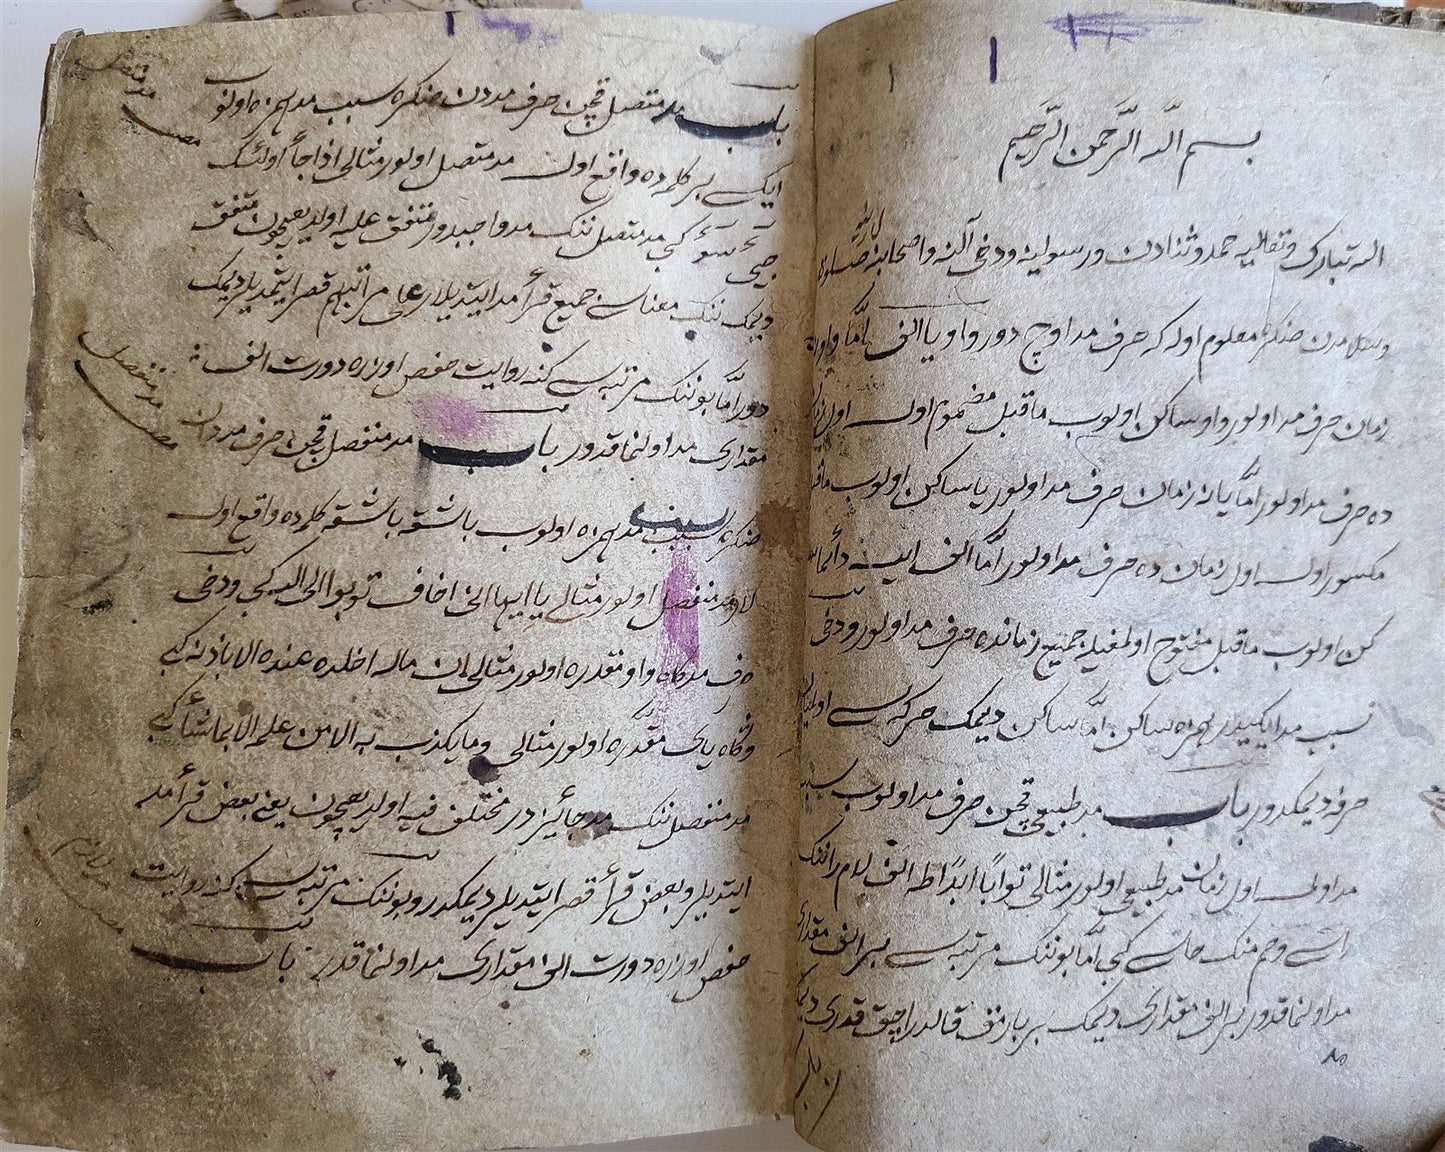 بسم الله الرحمن الرحيم
الله تبارك وتعاليه حمد وثنادن ورسولينه ودخى آلنه واصحابنه صلوة
وسلامدن صكره معلوم اوله كه حرف مد اوچ دور واو ويا الف امّا واو نه
زمان حرف مد اولور واو ساكن اولوب ماقبل مضموم اولسه اول زمان
ده حرف مد اولور امّا يا نه زمان حرف مد اولور يا ساكن اولوب ماقبل
مكسور اولسه اول زمان ده حرف مد اولور امّا الف ايسه دائما سا
كن اولوب ماقبل مفتوح اولمغيله جميع زمانده حرف مد اولور ودخى
سبب مد ايكيدر همزه ساكن امّا ساكن ديمك حركه سى اولميان
حرفه ديمكدور باب مد طبيعى قچن حرف مد اولوب سبب
مد اولمسه اول زمان مد طبيعى اولور مثالى توابا ابدا طه الف لام رانك
راسى وحم نك حاسى كبى امّا بونك مرتبه سى بر الف مقدارى
مد اولنماقدور بر الف مقدارى ديمك بر بارمق قالدراجق قدرى ديمك
باب مد متصل قچن حرف مددن صكره سبب مد همزه اولوب
ايكسى بر كلمه ده واقع اولسه مد متصل اولور مثالى اذا جاء اولئك
جىء سوء كبى مد متصل نك مدى واجبدور متفق عليه اولديغيچون متفق
ديمك نك معناسى جميع قرأ مد ايتديلار على مراتبهم قصر ايتمديلر ديمك
دور امّا بونك مرتبه سى كنه روايت حفص اوزره دورت الف
مقدارى مد اولنماقدور باب مد منفصل قچن حرف مددن
صكره سبب مد همزه اولوب باشقه باشقه كلمه ده واقع اولسه
مد منفصل اولور مثالى يا ايها انى اخاف توبوا الى الله كبى ودخى
حرف مد كاه واو مقدره اولور مثالى ان ماله اخلده عنده الا باذنه كبى
وكاه ياى مقدره اولور مثالى وما يكذب به الا من علمه الا بما شاء كبى
مد منفصل نك مد جائزدر مختلف فيه اولديغيچون يعنى بعض قرأ مد
ايتديلر وبعض قرأ قصر ايتديلر ديمكدر وبونك مرتبه سى كنه روايت
حفص اوزره دورت الف مقدارى مد اولنماقدر باب
مد متصل
مد منفصل
مد لازم